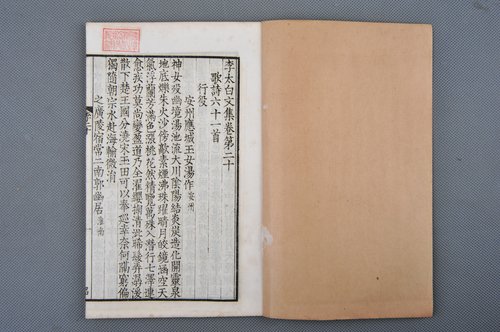 李太白文集卷第二十
歌詩六十一首
行役
安州應城玉女湯作 安州
神女歿幽境湯池流大川陰陽結炎炭造化開靈泉
地底爍朱火沙傍歊素煙沸珠躍晴月皎鏡涵空天
氣浮蘭芳滿色漲桃花然精覽萬殊入潛行七澤連
愈疾功莫尚變盈道乃全濯纓掬清泚晞髮弄潺湲
散下楚王國分澆宋玉田可以奉巡幸奈何隔窮偏
獨隨朝宗水赴海輸微涓
之廣陵宿常二南郭幽居 淮南